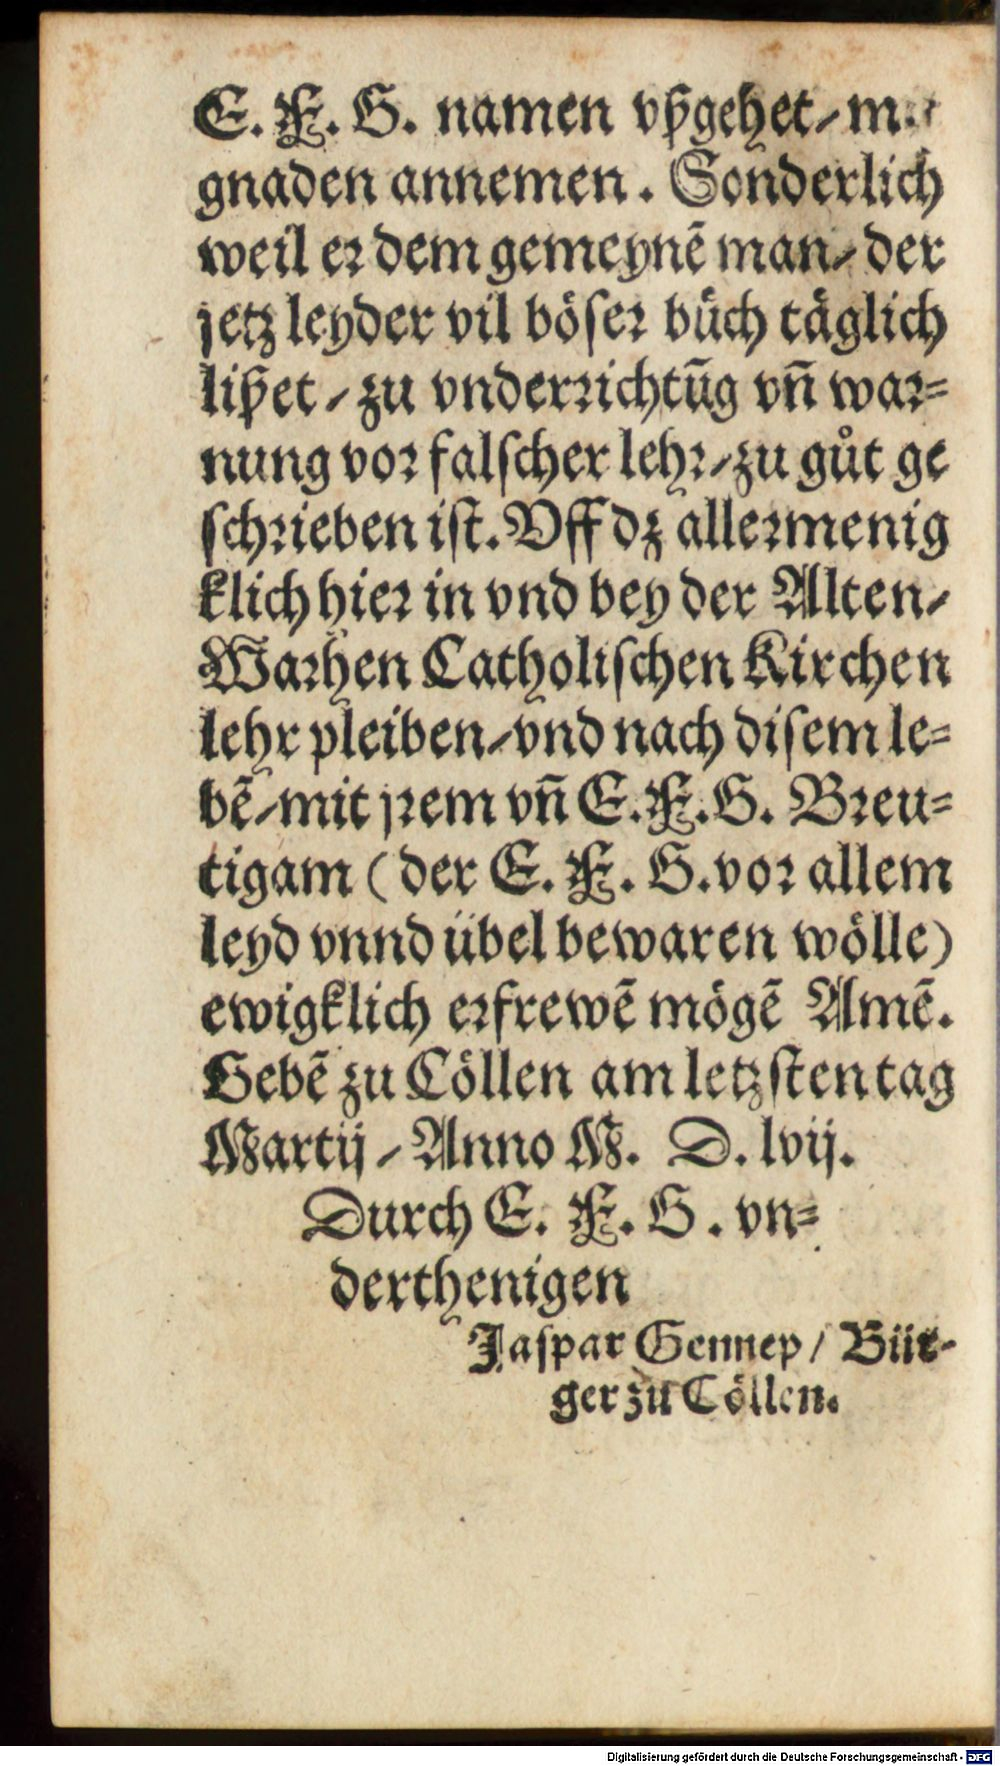 E. F. G. namen vßgehet / mit
gnaden annemen. Sonderlich
weil er dem gemeynē man / der
jetz leyder vil böser bůch täglich
lißet / zu vnderrichtūg vn̄ war=
nung vor falscher lehr / zu gůt ge
schrieben ist. Vff dz allermenig
klich hier in vnd bey der Alten /
Warhen Catholischen Kirchen
lehr pleiben / vnd nach disem le=
bē / mit jrem vn̄ E. F. G. Breu=
tigam (der E. F. G. vor allem
leyd vnnd übel bewaren wölle)
ewigklich erfrewē mögē Amē.
Gebē zu Cöllen am letzsten tag
Martij / Anno M. D. lvij.
Durch E. F. G. vn=
derthenigen
Jaspar Gennep / Bür=
ger zu Cöllen.
Digitalisierung gefördert durch die Deutsche Forschungsgemeinschaft - DFG